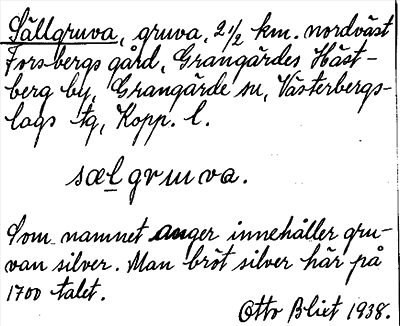 Sällgruva, gruva, 2 1/2 km. nordväst
Forsbergs gård, Grangärdes Häst-
berg by, Grangärde sn, Västerbergs-
lags tg, Kopp. l.
sælgruva.
Som namnet anger innehåller gru-
van silver. Man bröt silver här på
1700 talet.
Otto Blixt 1938.